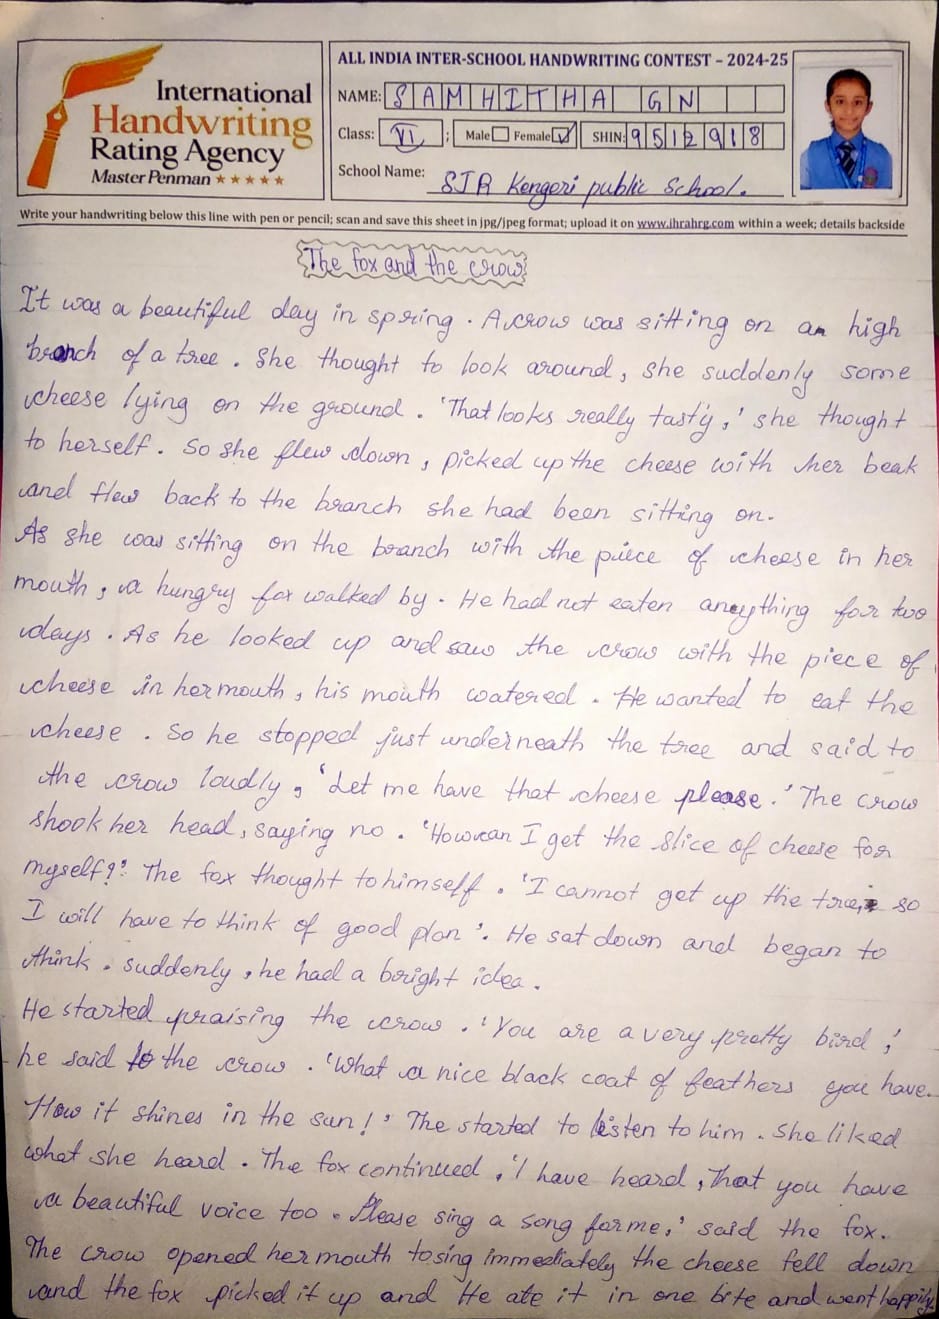 International
Handwriting
Rating Agency
Master Penman ★★★★★
ALL INDIA INTER-SCHOOL HANDWRITING CONTEST – 2024-25
NAME: SAMHITHA GN
Class: VI ; Male Female ✓ SHIN: 9512918
School Name: SJR Kengeri public School.
Write your handwriting below this line with pen or pencil; scan and save this sheet in jpg/jpeg format; upload it on www.ihrahrg.com within a week; details backside
The fox and the crow
It was a beautiful day in spring. A crow was sitting on an high
branch of a tree. She thought to look around, she suddenly some
cheese lying on the ground. 'That looks really tasty,' she thought
to herself. So she flew down, picked up the cheese with her beak
and flew back to the branch she had been sitting on.
As she was sitting on the branch with the piece of cheese in her
mouth, a hungry fox walked by. He had not eaten anything for two
days. As he looked up and saw the crow with the piece of
cheese in her mouth, his mouth watered. He wanted to eat the
cheese. So he stopped just underneath the tree and said to
the crow loudly, 'Let me have that cheese please.' The crow
shook her head, saying no. 'How can I get the slice of cheese for
myself?' The fox thought to himself. 'I cannot get up the tree, so
I will have to think of good plan'. He sat down and began to
think. suddenly, he had a bright idea.
He started praising the crow. 'You are a very pretty bird,'
he said to the crow. 'What a nice black coat of feathers you have.
How it shines in the sun!' The started to listen to him. She liked
what she heard. The fox continued, 'I have heard, That you have
a beautiful voice too. Please sing a song for me,' said the fox.
The crow opened her mouth to sing immediately the cheese fell down
and the fox picked it up and He ate it in one bite and went happily.